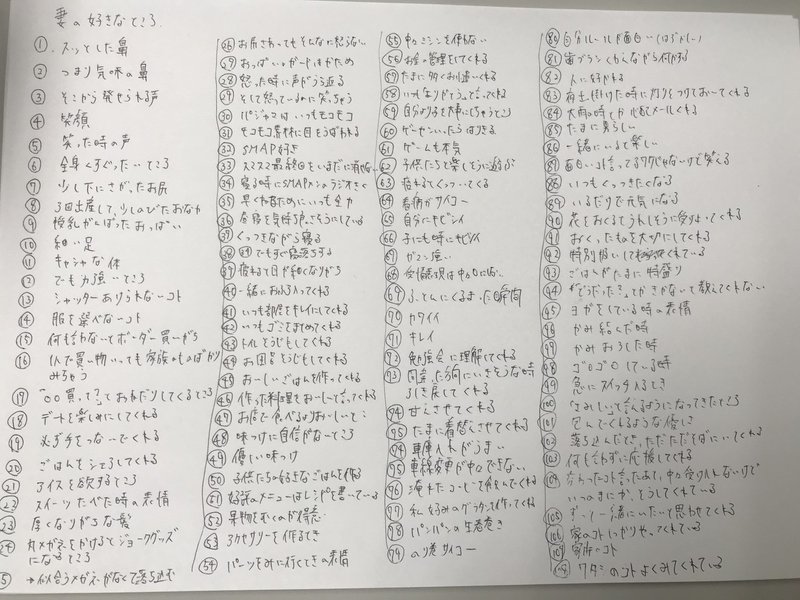 妻の好きなところ
① スッとした鼻
② つまり気味の鼻
③ そこから発せられる声
④ 笑顔
⑤ 笑った時の声
⑥ 全身くすぐったいところ
⑦ 少し下にさがったお尻
⑧ 3回出産して、少しのびたおなか
⑨ 授乳がんばったおっぱい
⑩ 細い足
⑪ キャシャな体
⑫ でも力強いところ
⑬ シャッターありうれないコト
⑭ 服を選べないコト
⑮ 何も言わないとボーダー買いがち
⑯ 1人で買い物いっても家族のものばかり
みちゃう
⑰ 「○○買って?」っておねだりしてくるところ
⑱ デートを楽しみにしてくれる
⑲ 必ず手をつないでくれる
⑳ ごはんをシェアしてくれる
㉑ アイスを欲するところ
㉒ スイーツたべた時の表情
㉓ 厚くなりがちな髪
㉔ 丸メガネをかけるとジョークグッズ
になるところ
㉕ →似合うメガネがなくて落ち込む
㉖ お尻さわってもそんなに怒らない
㉗ おっぱいのガードはかため
㉘ 怒った時に声がうら返る
㉙ そして怒っているのに笑っちゃう
㉚ パジャマはいつもモコモコ
㉛ モコモコ素材に目をうばわれる
㉜ SMAP好き
㉝ スマスマ最終回をいまだに消せない
㉞ 寝る時にSMAPメンのラジオきく
㉟ 早く寝るためにいつも全力
㊱ 昼寝を気持ちよさそうにしている
㊲ くっつきながら寝る
㊳ でもすぐ寝落ちする
㊴ 疲れて目が細くなりがち
㊵ 一緒にお風呂入ってくれる
㊶ いつも部屋をキレイにしてくれる
㊷ いつもゴミをまとめてくれる
㊸ トイレそうじもしてくれる
㊹ お風呂そうじもしてくれる
㊺ おいしいごはんを作ってくれる
㊻ 作った料理をおいしいと言ってくれる
㊼ お店で食べるよりおいしいと
㊽ 味つけに自信がないところ
㊾ 優しい味つけ
㊿ 子供たちの好きなごはんを作る
51 好評のメニューはレシピを書いている
52 果物をむくのが得意
53 アクセサリーを作るとき
54 パーツをみに行くときの表情
55 中々ミシンを使わない
56 お金の管理をしてくれる
57 たまに多くお小遣いくれる
58 いつもありがとうってくれる
59 自分よりも子を大事にしちゃうところ
60 ゲーセンいったらはりきる
61 ゲームも本気
62 子供たちと楽しそうに遊ぶ
63 疲れてくっついてくる
64 看病がサイコー
65 自分にキビシイ
66 子にも時にキビシイ
67 ガマン強い
68 受験は中々口に出さない
69 ふとんにくるまった瞬間
70 カワイイ
71 キレイ
92 勉強会に理解してくれる
93 間違った方向にいきそうな時
ひき戻してくれる
94 甘えさせてくれる
95 たまに着替えさせてくれる
94 車庫入れがうまい
95 車線変更が中々できない
96 淹れたコーヒーを飲んでくれる
97 私好みのグラタンを作ってくれる
98 パンパンの生春巻き
79 のり巻サイコー
80 自分ルールが面白い(はずかしい)
81 歯ブラシくわえながら何かする
82 人に好かれる
83 夜出掛けた時に灯りをつけておいてくれる
84 大雨の時とか心配でメールくれる
85 たまに素らしい
86 一緒にいると楽しい
87 面白い話ってるワケじゃないけど笑える
88 いつもくっつきたくなる
89 いるだけで元気になる
90 花をおくるとうれしそうに受けとってくれる
91 おくったものを大切にしてくれる
92 特別扱いしてくれる
93 ごはんがたまに特盛り
94 「どうだった?」ってきかないと教えてくれない
95 ヨガをしている時の表情
96 かみ結んだ時
97 かみおろした時
98 ゴロゴロしている時
99 急にスイッチ入るとき
100 「さみしい」と言えるようになってきたところ
101 包んでくれるような優しさ
102 落ち込んだとき、ただただそばにいてくれる
103 何も言わずに応援してくれる
104 変わったコト言ったあと、中々受け入れないけど
いつのまにか、そうしてくれている
105 ずっと一緒にいたいと思わせてくれる
106 家のコトしっかりやってくれている
107 家族のコト
108 ワタシのコトよくみてくれている